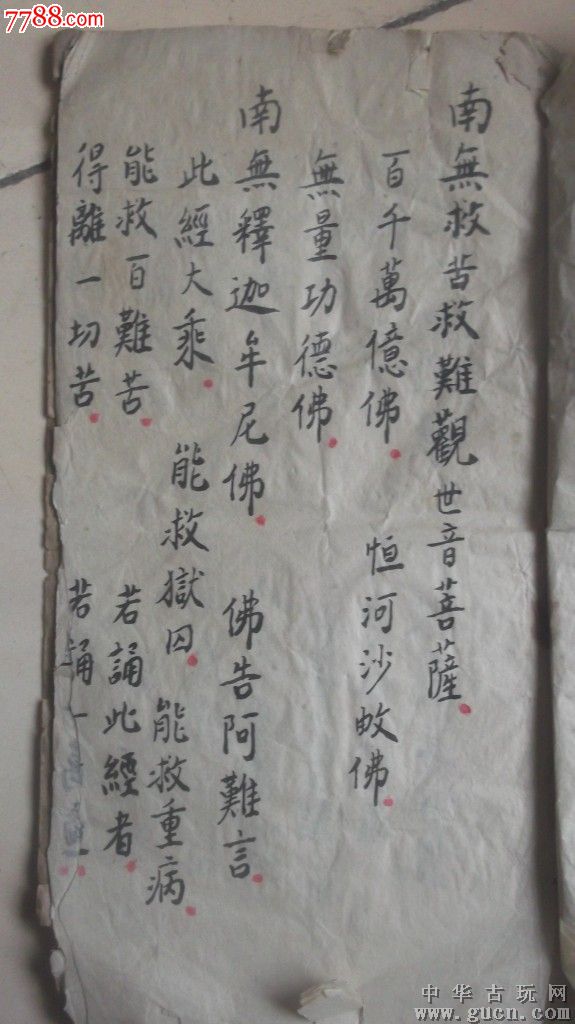 7788.com
南無救苦救難觀世音菩薩
百千萬億佛 恒河沙數佛
無量功德佛
南無釋迦牟尼佛 佛告阿難言
此經大乘 能救獄囚 能救重病
能救百難苦 若誦此經者
得離一切苦 若誦一
中华古玩网
www.gucn.com